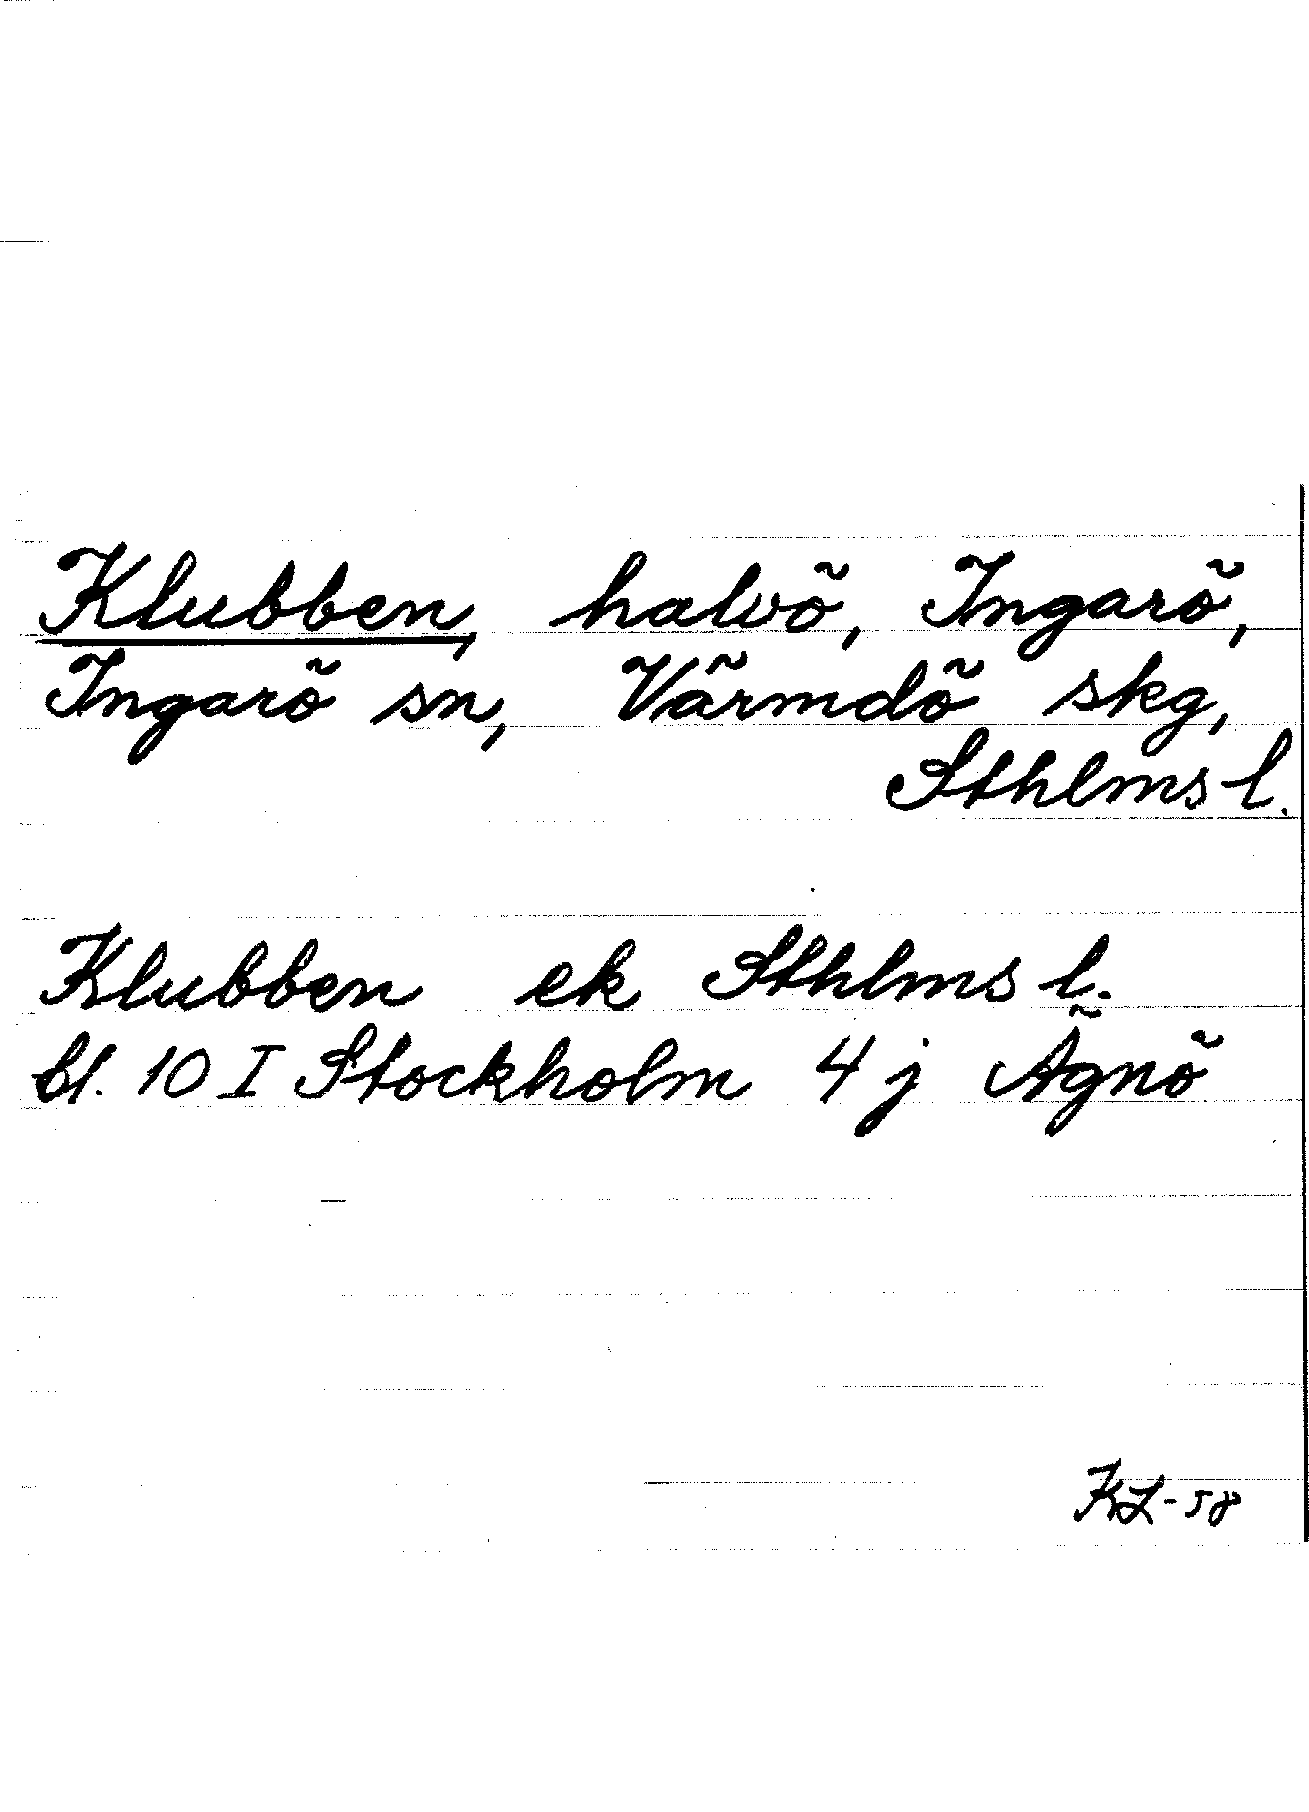 Klubben, halvö, Ingarö,
Ingarö sn, Värmdö skg,
Sthlms l.
Klubben ek Sthlms l.
bl. 10 I Stockholm 4 j Ägnö
KL-58